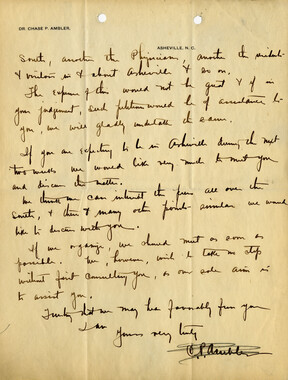 DR. CHASE P. AMBLER,
ASHEVILLE, N. C.
South, another the Physicians, another the resident
& visitors in & about Asheville & so on.
The expense of this would not be great & if in
your judgement, such petitions would be of assistance to
you, we will gladly undertake the same.
If you are expecting to be in Asheville during the next
two weeks we would like very much to meet you
and discuss the matter.
We think we can interest the press all over the
South, & there & many other points similar we would
like to discuss with you.
If we organize, we should meet as soon as
possible. We, however, will take no steps
without first consulting you, as our sole aim is
to assist you.
Trusting that we may hear favorably from you
I am
Yours very truly
C. P. Ambler